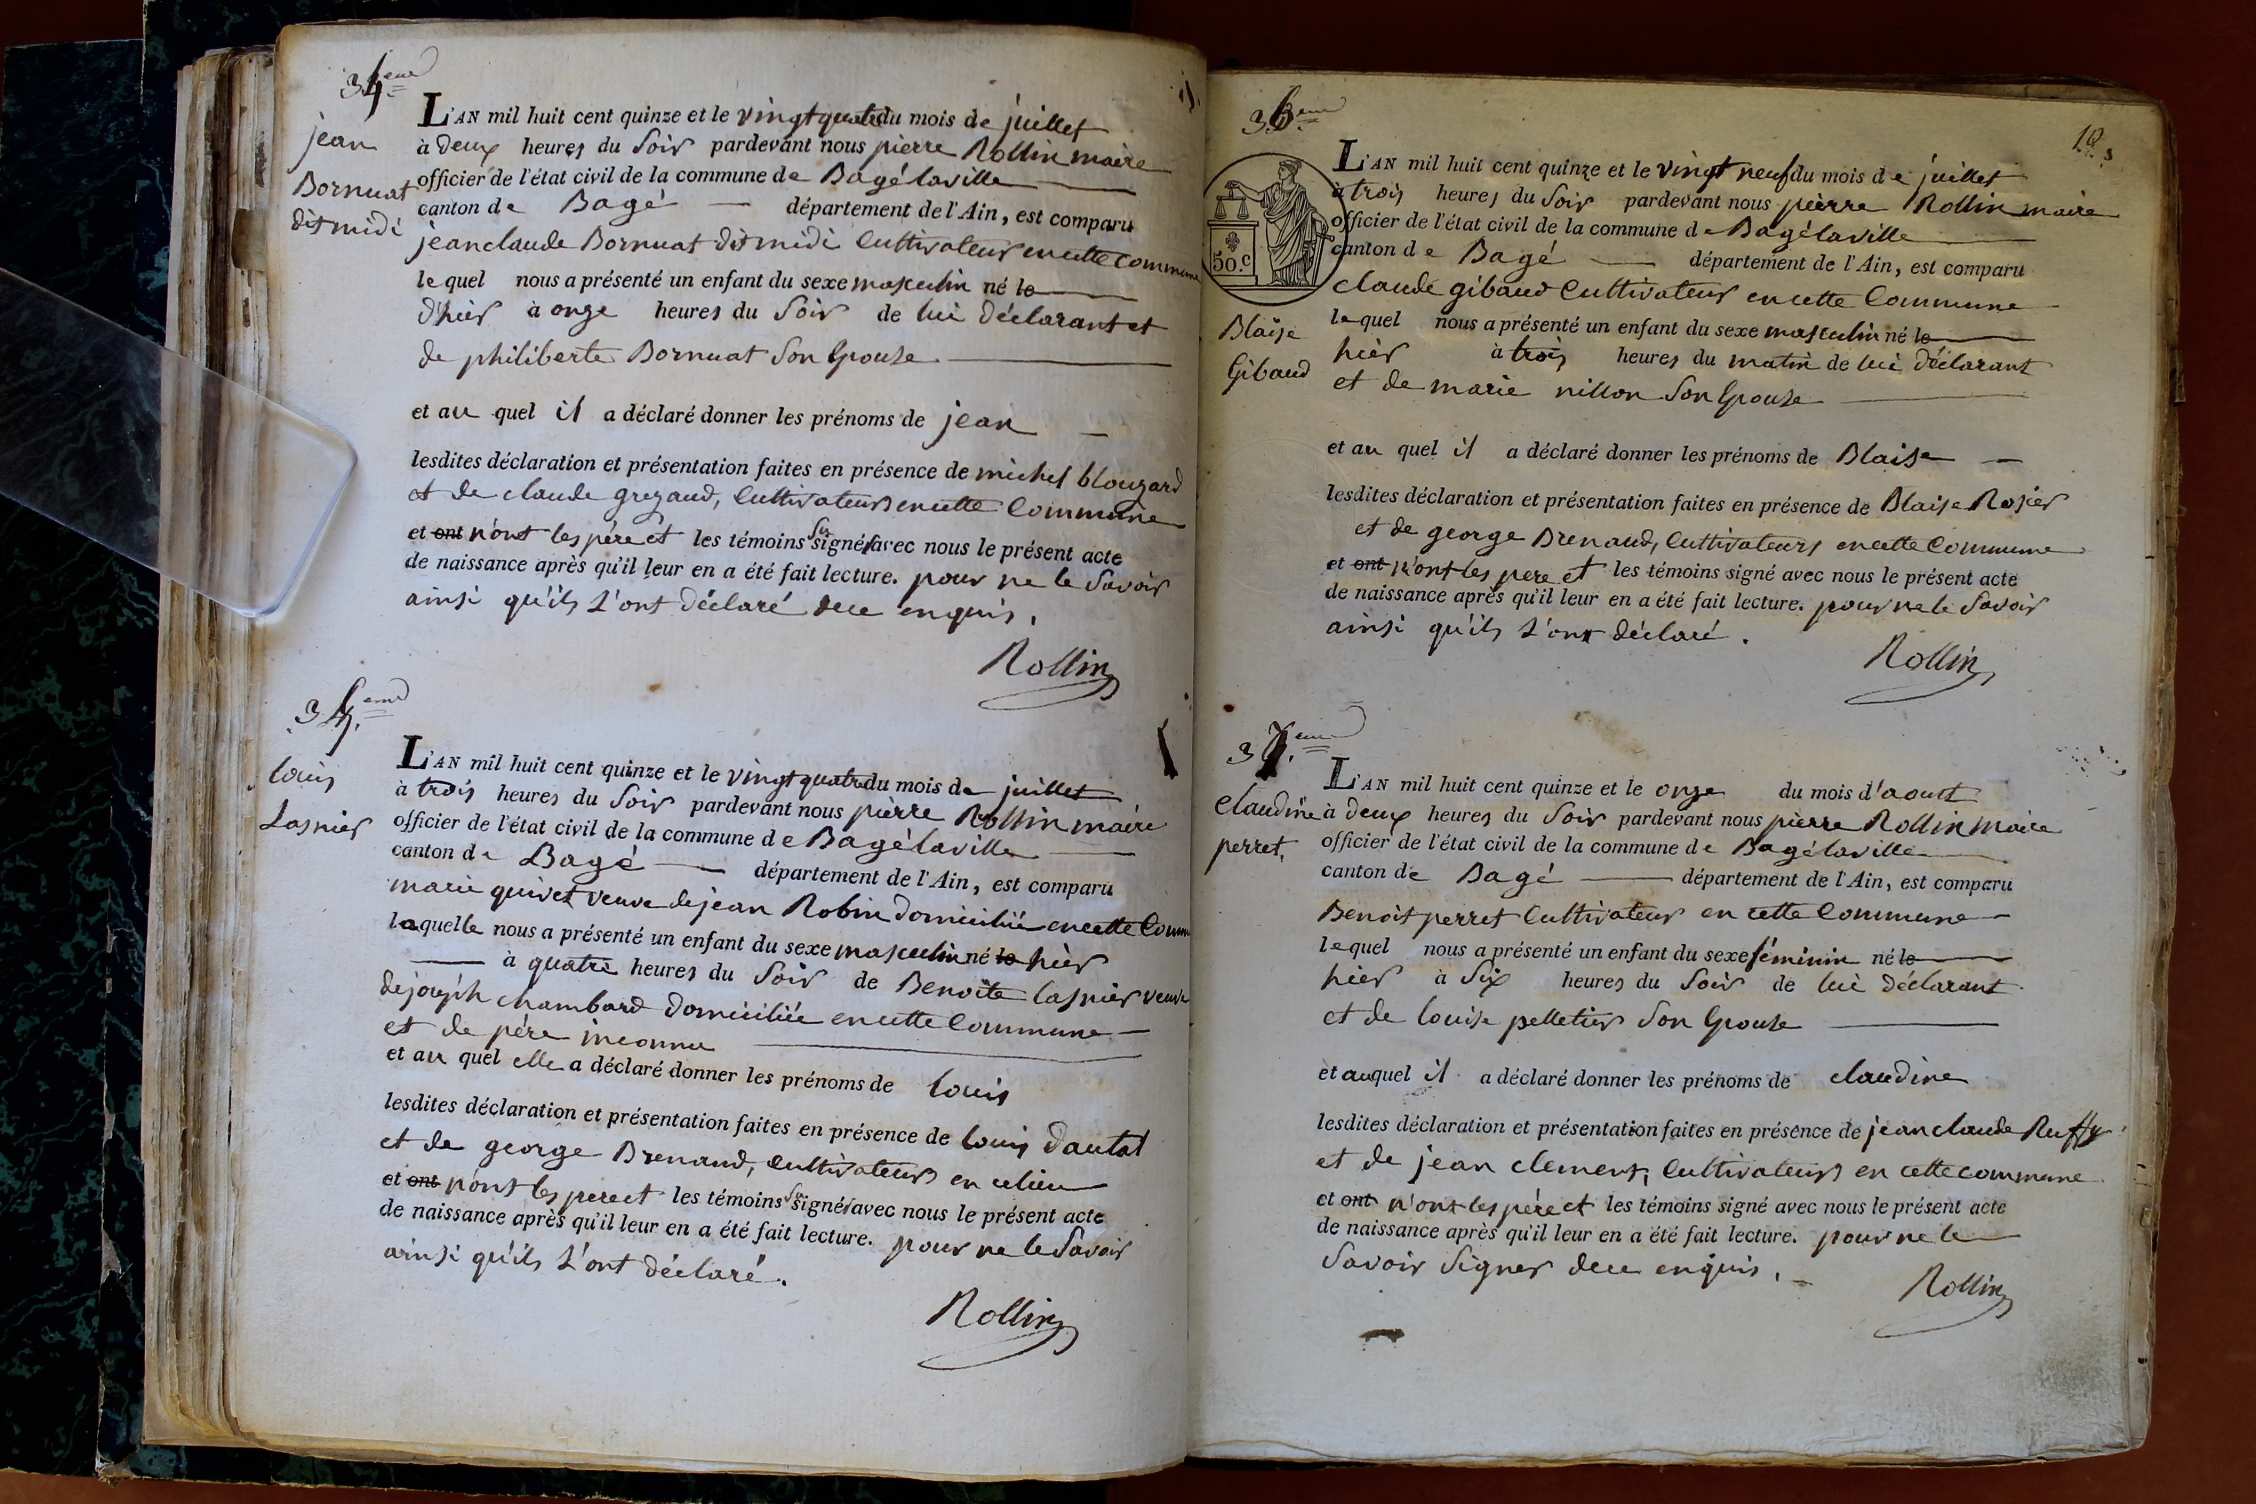 34eme
jean
Bornuat
dit midi
L'AN mil huit cent quinze et le vingt quatre du mois de juillet
à deux heures du Soir pardevant nous pierre Rollin maire
officier de l'état civil de la commune de Bagélaville
canton de Bagé département de l'Ain, est comparu
jean claude Bornuat dit midi Cultivateur en cette Commune
le quel nous a présenté un enfant du sexe masculin né le
d'hier à onze heures du Soir de lui déclarant et
de philiberte Bornuat Son Epouse
et au quel il a déclaré donner les prénoms de jean
lesdites déclaration et présentation faites en présence de michel blouzard
et de claude grezaud, Cultivateurs en cette Commune
et ont n'ont les pére et les témoins Su signér avec nous le présent acte
de naissance après qu'il leur en a été fait lecture. pour ne le Savoir
ainsi qu'ils L'ont déclaré dece enquis.
Rollin
eme
louis
Lasnier
L'AN mil huit cent quinze et le vingt quatre du mois de juillet
à trois heures du Soir pardevant nous pierre Rollin maire
officier de l'état civil de la commune de Bagélaville
canton de Bagé département de l'Ain, est comparu
marie quivet veuve de jean Robin domiciliée en cette Comm
laquelle nous a présenté un enfant du sexe masculin né le hier
à quatre heures du Soir de Benoite lasnier veuve
de joseph chambard domiciliée en cette Commune
et de pére inconnu
et au quel elle a déclaré donner les prénoms de louis
lesdites déclaration et présentation faites en présence de louis dautal
et de george Brenaud, Cultivateurs en ce lieu
et ont n'ont les pere et les témoins Su signér avec nous le présent acte
de naissance après qu'il leur en a été fait lecture. pour ne le Savoir
ainsi qu'ils L'ont déclaré.
Rollin
36eme
50.c
Blaise
Gibaud
L'AN mil huit cent quinze et le vingt neuf du mois de juillet
à trois heures du Soir pardevant nous pierre Rollin maire
officier de l'état civil de la commune de Bagélaville
canton de Bagé département de l'Ain, est comparu
claude gibaud Cultivateur en cette Commune
le quel nous a présenté un enfant du sexe masculin né le
hier à trois heures du matin de lui déclarant
et de marie nillon Son Epouse
et au quel il a déclaré donner les prénoms de Blaise
lesdites déclaration et présentation faites en présence de Blaise Rosier
et de george Brenaud, Cultivateurs en cette Commune
et ont n'ont les pere et les témoins signé avec nous le présent acte
de naissance après qu'il leur en a été fait lecture. pour ne le Savoir
ainsi qu'ils L'ont déclaré.
Rollin
37.eme
Claudine
perret,
L'AN mil huit cent quinze et le onze du mois d'aoust
à deux heures du Soir pardevant nous pierre Rollin Maire
officier de l'état civil de la commune de Bagélaville
canton de Bagé département de l'Ain, est comparu
Benoit perret Cultivateur en cette Commune
le quel nous a présenté un enfant du sexe féminin né le
hier à Six heures du Soir de lui déclarant
et de louise pelletier Son Epouse
et auquel il a déclaré donner les prénoms de claudine
lesdites déclaration et présentation faites en présence de jean claude Ruffy
et de jean clement, Cultivateurs en cette commune
et ont n'ont les pére et les témoins signé avec nous le présent acte
de naissance après qu'il leur en a été fait lecture. pour ne le
Savoir Signer dece enquis.
Rollin